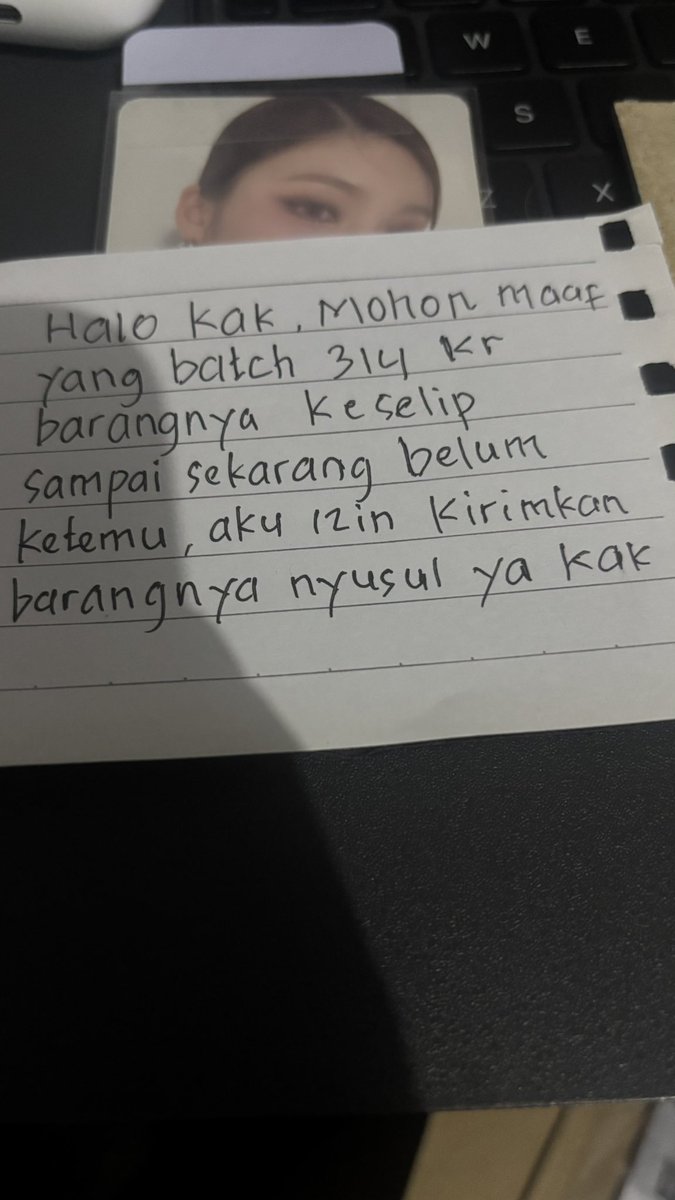 W E
S
Z X
Halo kak, Mohon maaf
yang batch 314 Kr
barangnya keselip
sampai sekarang belum
ketemu, aku izin kirimkan
barangnya nyusul ya kak